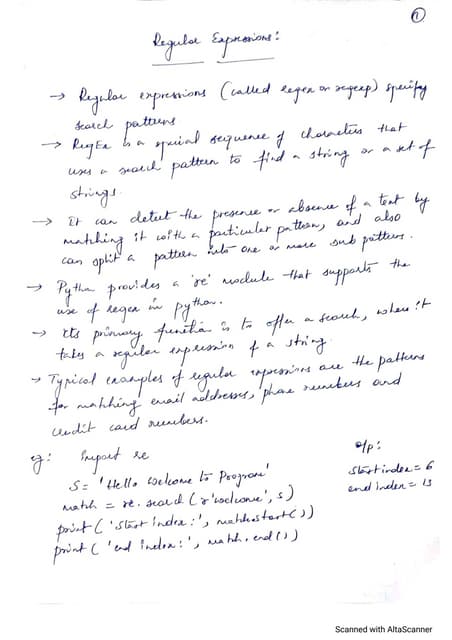 1
Regular Expressions:
→ Regular expressions (called regex or regexp) specify
search patterns
→ RegEx is a special sequence of characters that
uses a search pattern to find a string or a set of
strings.
→ It can detect the presence or absence of a text by
matching it with a particular pattern, and also
can split a pattern into one or more sub pattern.
→ Python provides a 're' module that supports the
use of regex in python.
→ Its primary function is to offer a search, where it
takes a regular expression & a string
→ Typical examples of regular expressions are the patterns
for matching email addresses, phone numbers and
credit card numbers.
eg: Import re
S = 'Hello welcome to Program'
match = re.search(r'welcome', s)
print('Start index:', match.start())
print('end index:', match.end())
o/p:
start index = 6
end index = 13
Scanned with AltaScanner